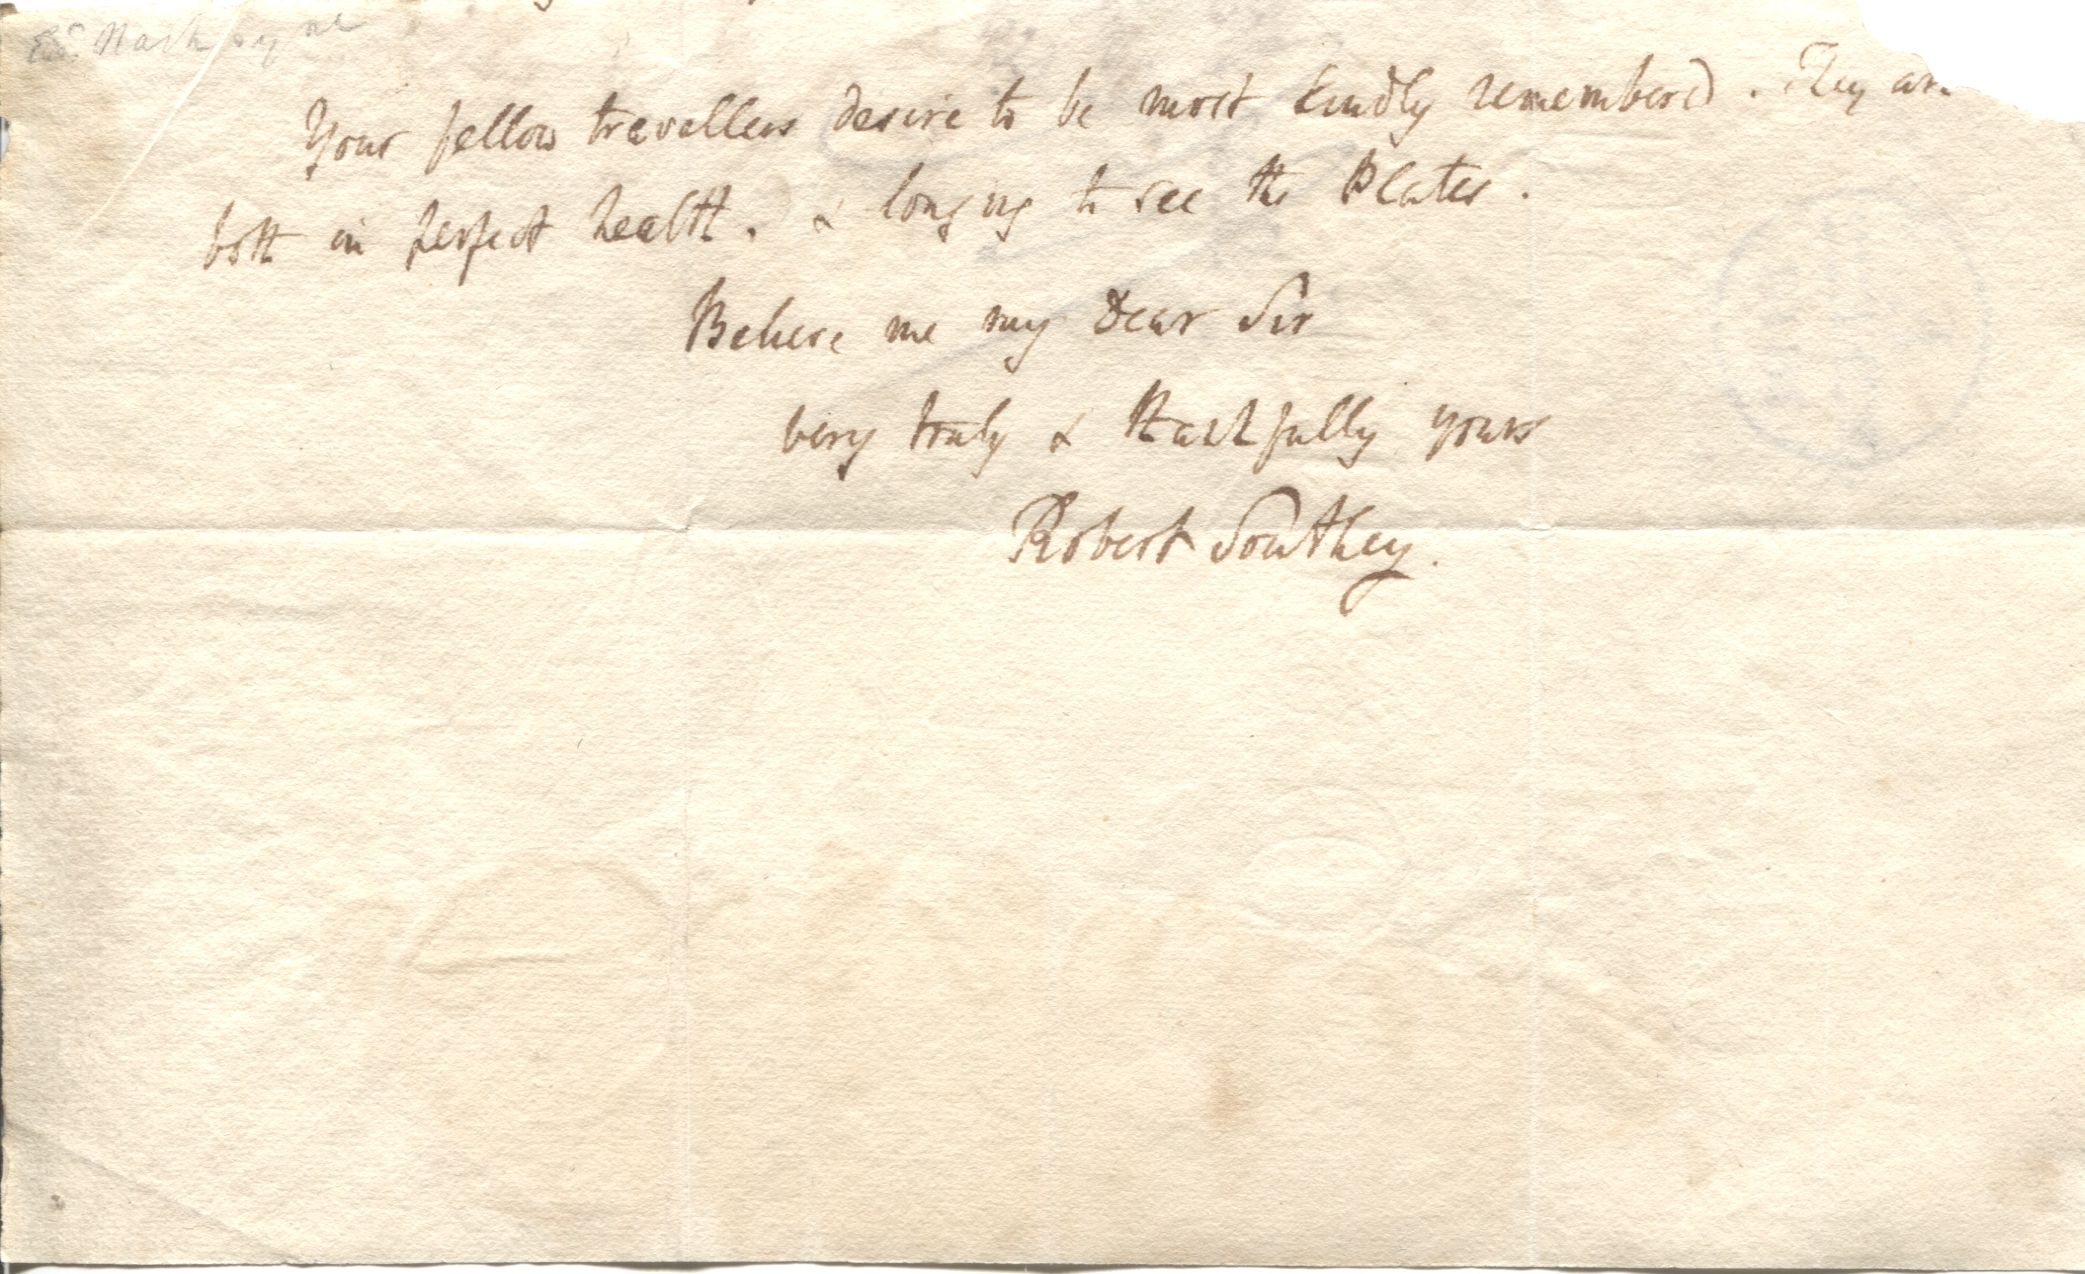 Your fellow travellers desire to be most kindly remembered. They are
both in perfect health. & longing to see the Plates.
Believe me my dear Sir
very truly & thankfully yours
Robert Southey.